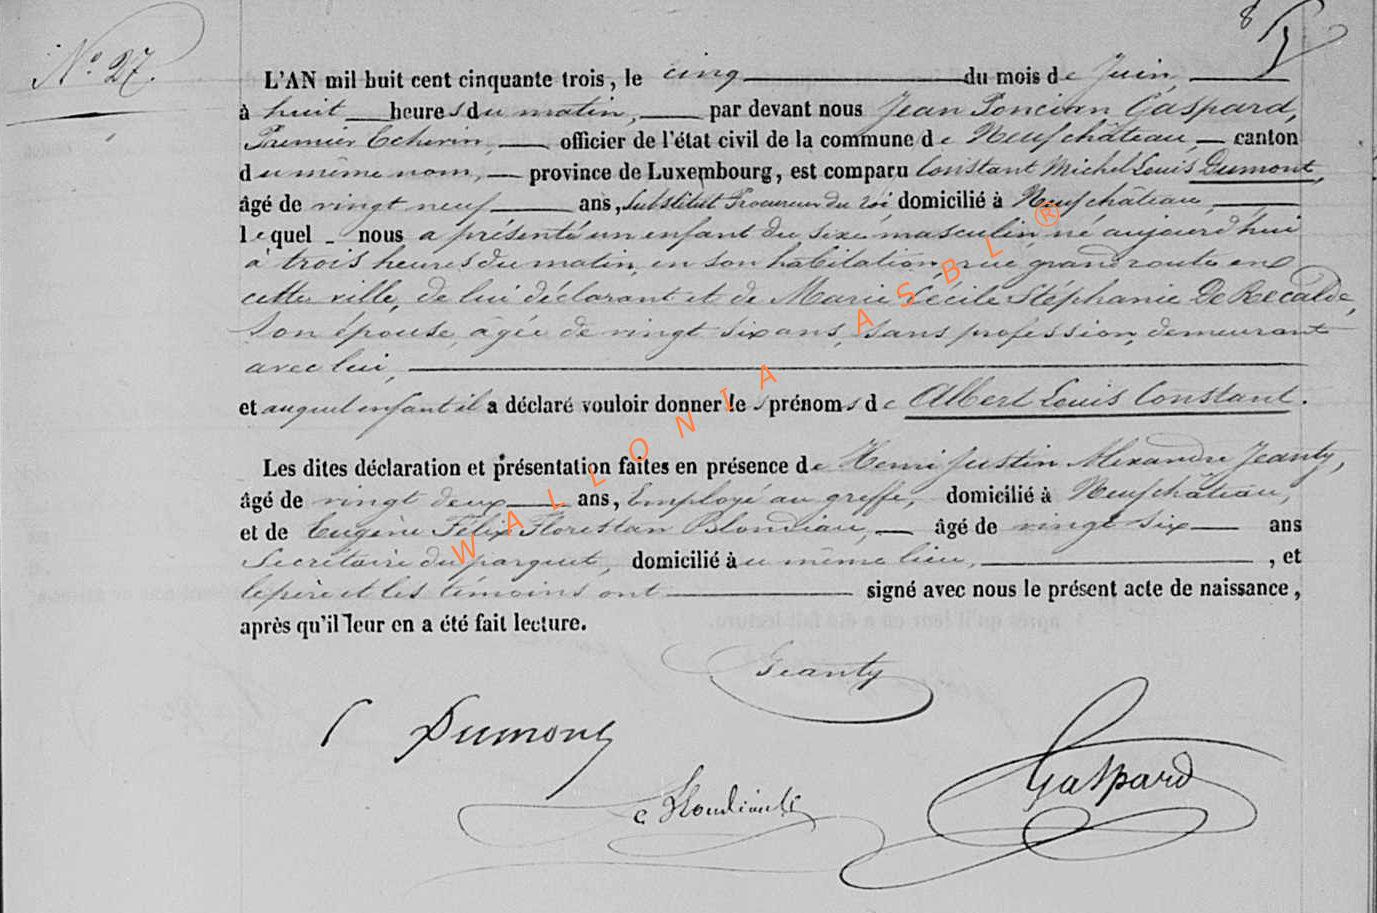 8
N° 27.
L'AN mil huit cent cinquante trois, le cinq du mois de Juin,
à huit heures du matin, par devant nous Jean Poncian Gaspard,
Premier Echevin, officier de l'état civil de la commune de Neufchâteau canton
du même nom, province de Luxembourg, est comparu Constant Michel Louis Dumont,
âgé de vingt neuf ans, Substitut Procureur du roi domicilié à Neufchâteau,
lequel nous a présenté un enfant du sexe masculin, né aujourd'hui
à trois heures du matin, en son habitation, rue grand route en
cette ville, de lui déclarant et de Marie Cécile Stéphanie De Recalde,
son épouse, âgée de vingt six ans, sans profession, demeurant
avec lui,
et auquel enfant il a déclaré vouloir donner les prénoms de Albert Louis Constant.
Les dites déclaration et présentation faites en présence de Henri Justin Alexandre Jeanty,
âgé de vingt deux ans, Employé au greffe, domicilié à Neufchâteau,
et de Eugène Félix Florestan Blondiau, âgé de vingt six ans
Secrétaire du parquet, domicilié au même lieu, , et
le père et les témoins ont signé avec nous le présent acte de naissance,
après qu'il leur en a été fait lecture.
Jeanty
C Dumont
Gaspard
WALLONIA ASBL ®